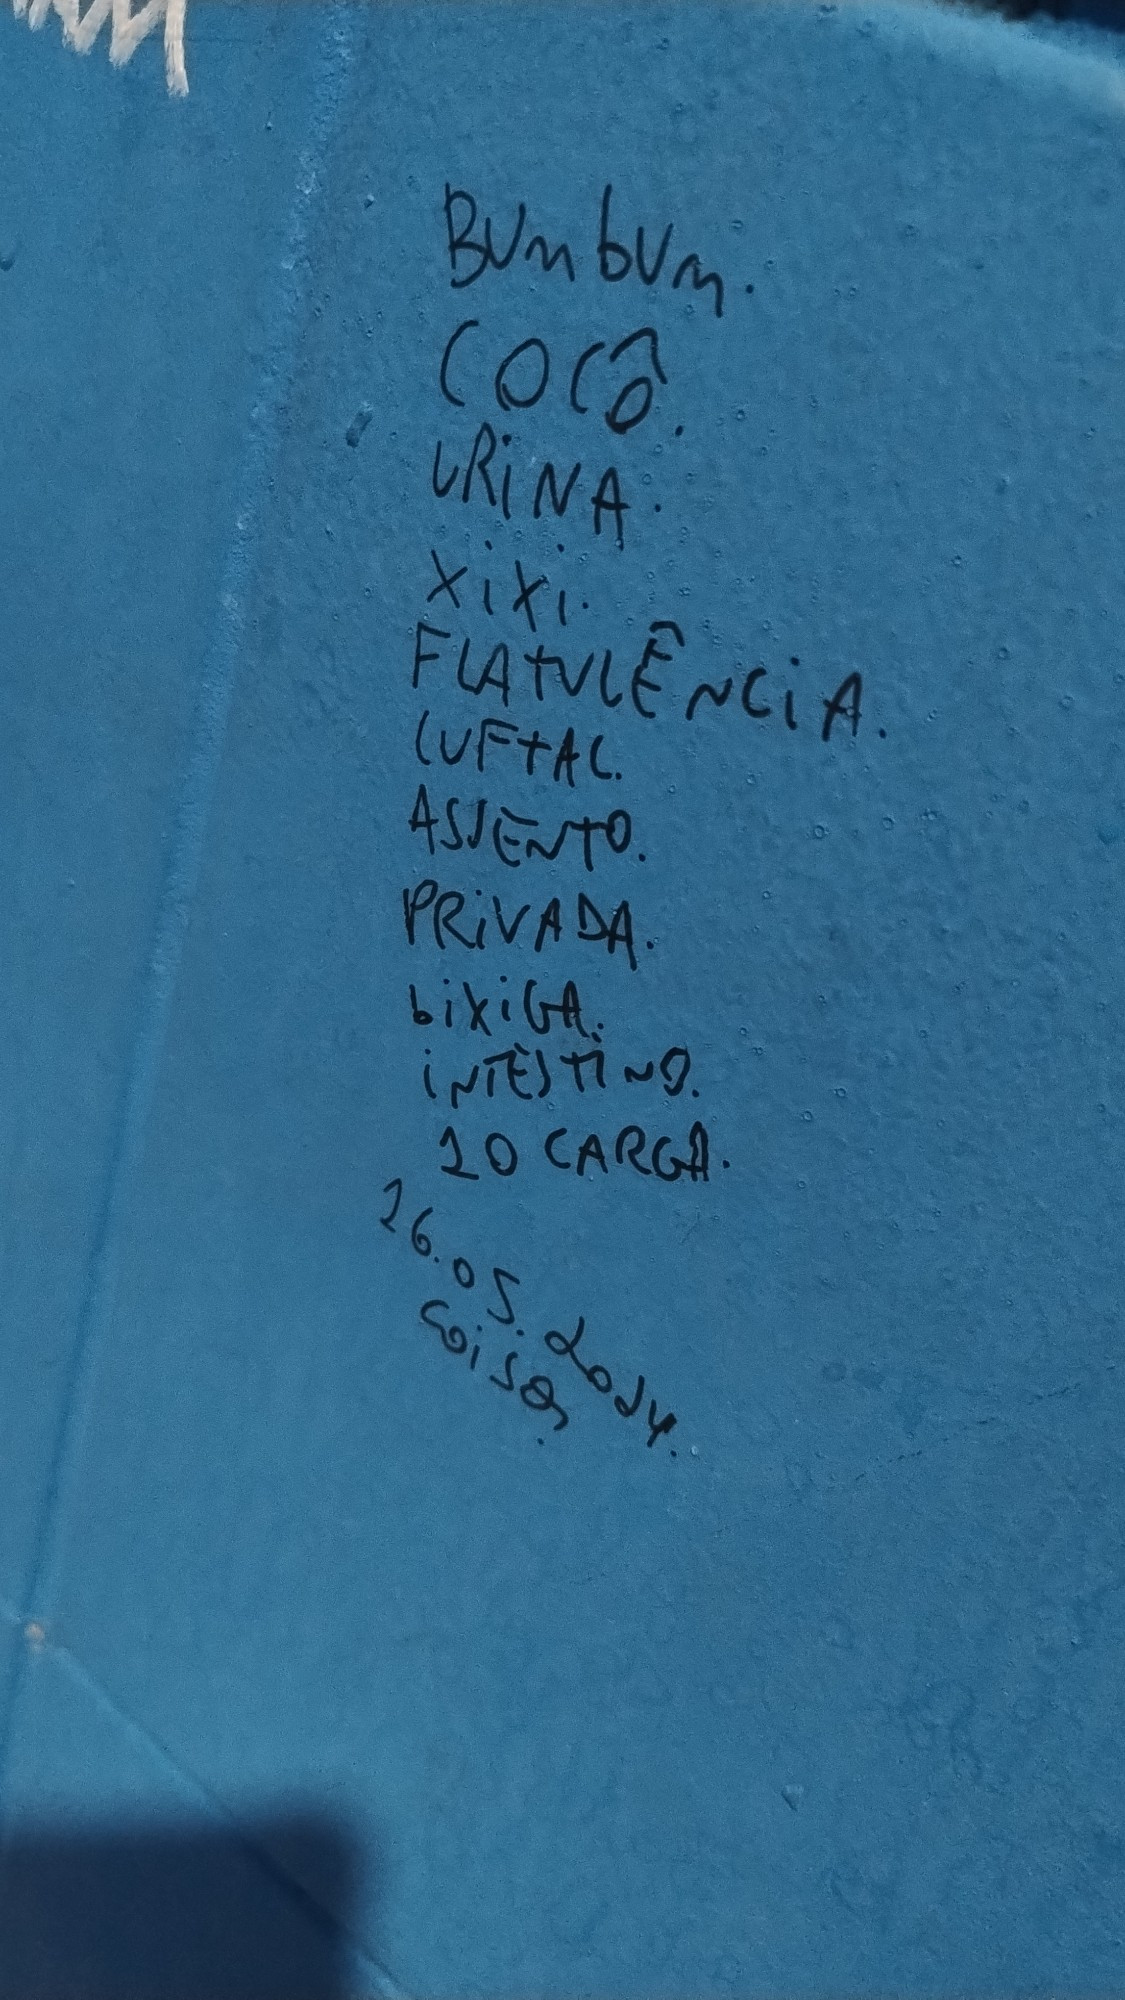 BUmbUm.
COCÔ.
URiNA.
XiXi.
FLATULÊNCiA.
LUFTAL.
ASSENTO.
PRiVADA.
biXiGA.
iNTESTiNO.
10 CARGA.
26.05.2024.
Coisas.